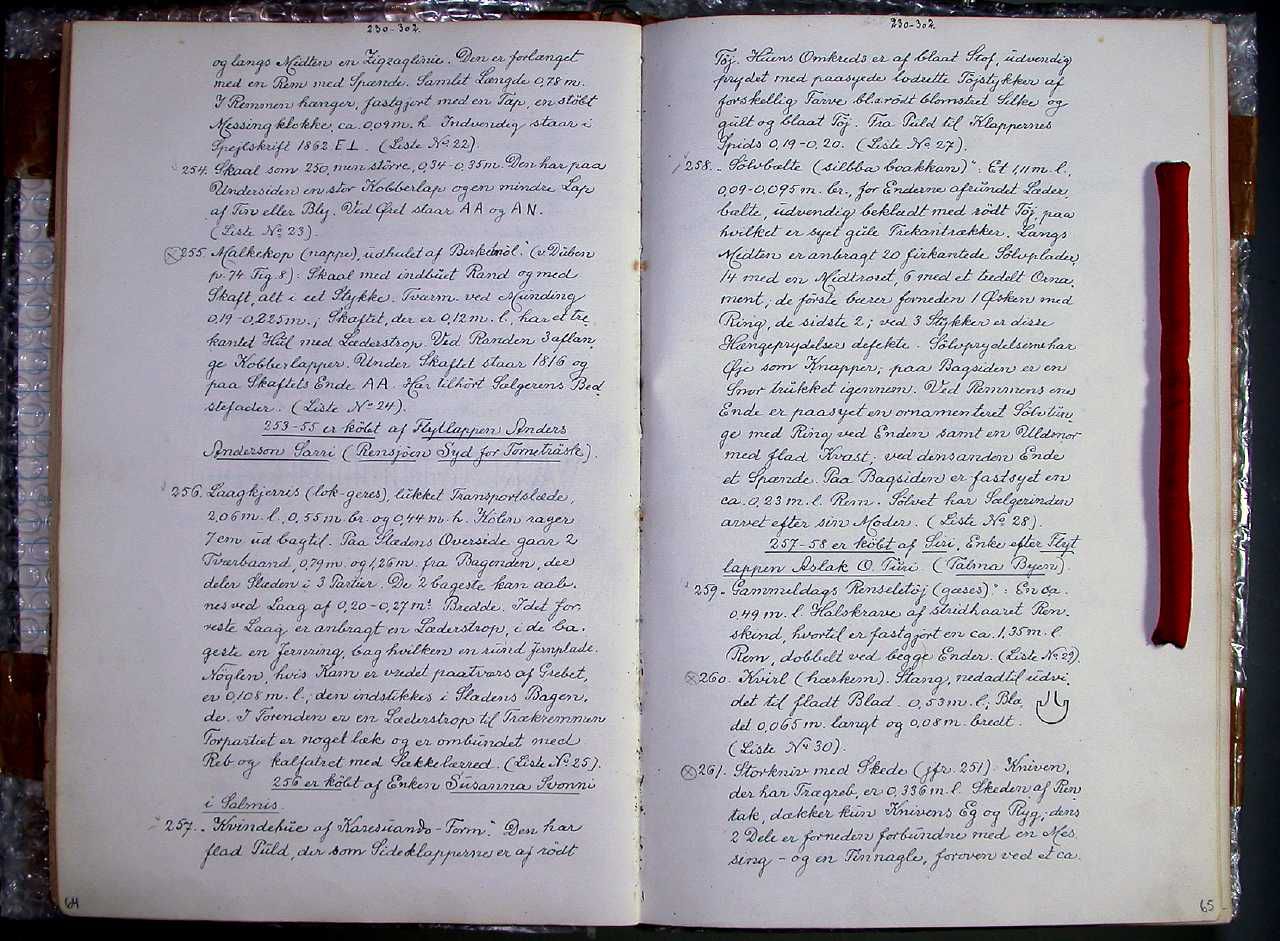 230-302.
og langs Midten en Zigzaglinie. Den er forlænget
med en Rem med Spænde. Samlet Længde 0,78 m.
I Remmen hænger, fastgjort med en Tap, en støbt
Messingklokke, ca. 0,09 m. h. Indvendig staar i
Spejlskrift 1862 E⊥. (Liste No 22).
254. Skaal som 250, men større, 0,34-0,35 m. Den har paa
Undersiden en stor Kobberlap og en mindre Lap
af Tin eller Bly. Ved Øret staar AA og AN.
(Liste No 23).
255. Malkekop (nappe), udhulet af Birke" (v. Düben
p. 74 Fig. 8): Skaal med indbuet Rand og med
Skaft, alt i eet Stykke. Tvarm. ved Munding
0,19-0,225 m.; Skaftet, der er 0,12 m. l., har et tre-
kantet Hul med Læderstrop. Ved Randen 3 aflan-
ge Kobberlapper. Under Skaftet staar 1816 og
paa Skaftets Ende AA. Har tilhørt Sælgerens Bed-
stefader. (Liste No 24).
253-55 er købt af Flytlappen Anders
Anderson Sarri (Rensjøen Syd for Torneträsk).
256. Laagkjerris (lok-geres), lukket Transportslæde,
2,06 m. l., 0,55 m. br. og 0,44 m. h. Kölen rager
7 cm ud bagtil. Paa Slædens Overside gaar 2
Tværbaand, 0,79 m. og 1,26 m. fra Bagenden, der
deler Slæden i 3 Partier. De 2 bageste kan aab-
nes ved Laag af 0,20-0,27 m's Bredde. I det for-
reste Laag er anbragt en Læderstrop, i de ba-
geste en Jernring, bag hvilken en rund Jernplade.
Nöglen, hvis Kam er vredet paatvärs af Grebet,
er 0,108 m. l.; den indstikkes i Slædens Bagen-
de. I Forenden er en Læderstrop til Trækremmen
Forpartiet er noget læk og er ombundet med
Reb og kalfatret med Sækkelærred. (Liste No 25).
256 er købt af Enken Susanna Svonni
i Salmis.
257. "Kvindehue af Karesuando-Form." Den har
flad Puld, der som Sideklapperne er af rödt
64
230-302.
Töj. Huens Omkreds er af blaat Stof, udvendig
prydet med paasyede lodrette Töjstykker af
forskellig Farve bl. a. rödt blomstret Silke og
gult og blaat Töj. Fra Puld til Klappernes
Spids 0,19-0,20. (Liste No 27).
258. "Sölvbælte (silbba boakkan)": Et 1,11 m. l.,
0,09-0,095 m. br., for Enderne afrundet Læder-
bælte, udvendig beklædt med rödt Töj, paa
hvilket er syet gule Trekantrækker. Langs
Midten er anbragt 20 firkantede Sölvplader,
14 med en Midtroset, 6 med et todelt Orna-
ment; de förste bærer forneden 1 Øsken med
Ring, de sidste 2; ved 3 Stykker er disse
Hængeprydelser defekte. Sölvprydelserne har
Øje som Knapper; paa Bagsiden er en
Snor trukket igennem. Ved Remmens ene
Ende er paasyet en ornamenteret Sölvtun-
ge med Ring ved Enden samt en Uldsnor
med flad Kvast; ved den anden Ende
et Spænde. Paa Bagsiden er fastsyet en
ca. 0,23 m. l. Rem. Sölvet har Sælgerinden
arvet efter sin Moder. (Liste No 28).
257-58 er købt af Siri, Enke efter Flyt-
lappen Aslak O. Turi (Talma Byen).
259. "Gammeldags Renseletöj (gæses)": En ca.
0,49 m. l. Halskrave af stridhaaret Ren-
skind, hvortil er fastgjort en ca. 1,35 m. l.
Rem, dobbelt ved begge Ender. (Liste No 29).
260. Kvirl (hærkem). Stang, nedadtil udvi-
det til fladt Blad. 0,53 m. l.; Bla-
det 0,065 m. langt og 0,08 m. bredt.
(Liste No 30).
261. Storkniv med Skede (jfr. 251). Kniven,
der har Trægreb, er 0,336 m. l. Skeden af Ren-
tak, dækker kun Knivens Eg og Ryg; dens
2 Dele er forneden forbundne med en Mes-
sing- og en Tinnagle, foroven ved et ca.
65